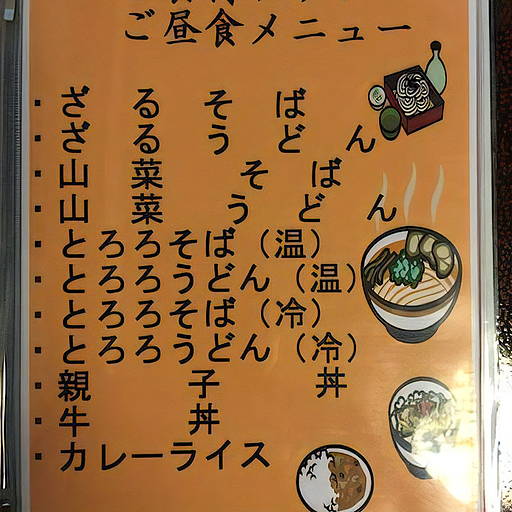 ご昼食メニュー
・ざるそば
・ざるうどん
・山菜そば
・山菜うどん
・とろろそば（温）
・とろろうどん（温）
・とろろそば（冷）
・とろろうどん（冷）
・親子丼
・牛丼
・カレーライス